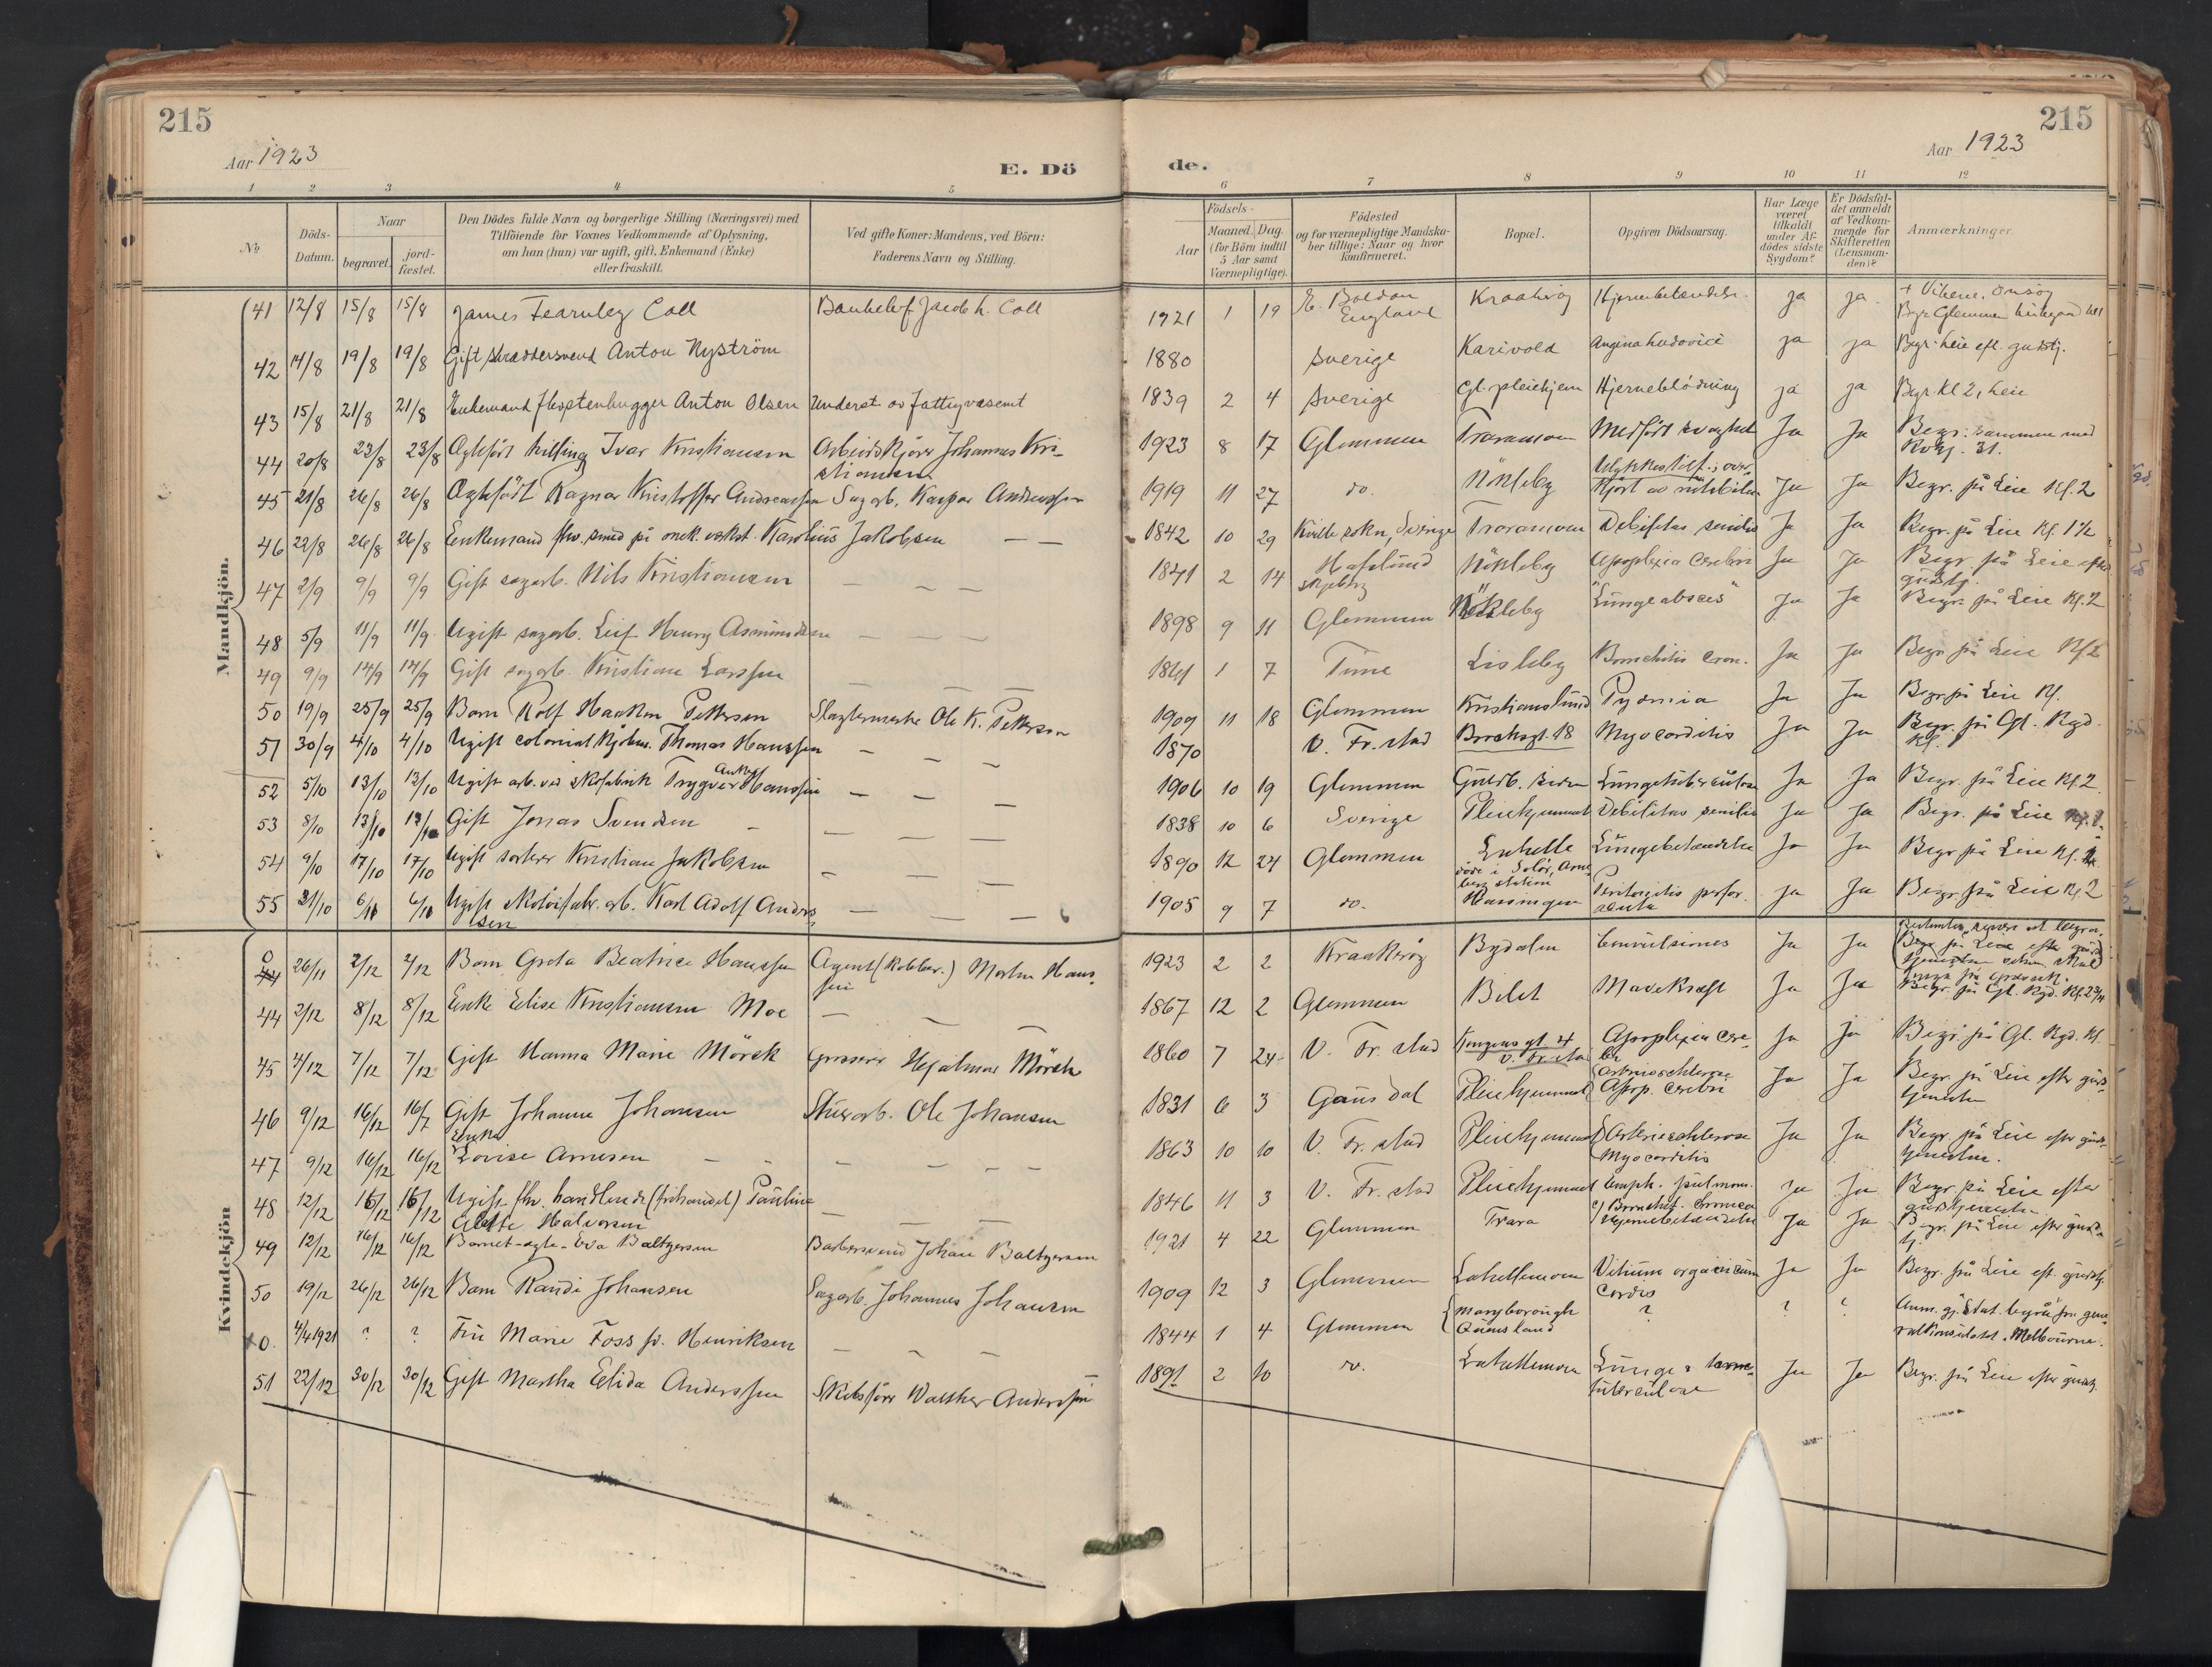 215
Aar 1923
E. Dö
1 2 3 4 5
No Döds-Datum. Naar begravet. jord-fæstet. Den Dödes fulde Navn og borgerlige Stilling (Næringsvei) med Tilföiende for Voxnes Vedkommende af Oplysning, om han (hun) var ugift, gift, Enkemand (Enke) eller fraskilt. Ved gifte Koner: Mandens, ved Börn: Faderens Navn og Stilling.
Mandkjön.
41 12/8 15/8 15/8 James Fearnley Coll Jacob h. Coll
42 14/8 19/8 19/8 Gift skræddersvend Anton Nyström
43 15/8 21/8 21/8 Enkemand Anton Olsen Underst. av fattigvæsenet
44 20/8 23/8 23/8 Ivar Kristiansen Arbeidskjörer Johannes Kri-
stiansen
45 21/8 26/8 26/8 Ragnar Kristoffer Andreassen Sagarb. Kaspar Andreassen
46 22/8 26/8 26/8 Enkemand fhv. smed på mek. verkst. Karolius Jakobsen
47 2/9 9/9 9/9 Gift sagarb. Nils Kristiansen
48 5/9 11/9 11/9 Ugift sagarb. Leif Henry Asmundsen
49 9/9 14/9 14/9 Gift sagarb. Kristian Larssen
50 19/9 25/9 25/9 Barn Rolf Haakon Pettersen Ole K. Pettersen
51 30/9 4/10 4/10 Ugift colonialkjöbm. Thomas Hanssen
52 5/10 13/10 13/10 Ugift arb. ved skofabrik Trygve Hanssen
53 8/10 13/10 13/10 Gift Jonas Svendsen
54 9/10 17/10 17/10 Ugift sorterer Kristian Jakobsen
55 31/10 6/11 6/11 Ugift skotöifabr. arb. Karl Adolf Anders
sen
Kvindekjön
0 26/11 2/12 2/12 Barn Greta Beatrice Hanssen Agent (Kobber.) Morten Hans-
sen
44 2/12 8/12 8/12 Enke Elise Kristiansen Moe
45 4/12 7/12 7/12 Gift Hanna Marie Mörck Grosserer Hjalmar Mörch
46 9/12 16/12 16/7 Gift Johanne Johansen Stuerarb. Ole Johansen
47 9/12 16/12 16/12 Enke Lovise Arnesen
48 12/12 16/12 16/12 Ugift fhv. handlende (frihandel) Pauline
Halvorsen
49 12/12 16/12 16/12 Barnet - egte - Eva Baltzersen Barbersvend Johan Baltzersen
50 19/12 26/12 26/12 Barn Randi Johansen Sagarb. Johannes Johansen
0. 4/4 1921 ? ? Fru Marie Foss f. Henriksen
51 22/12 30/12 30/12 Gift Martha Elida Anderssen Skibsförer Walther Anderssen
215
Aar 1923
de.
6 7 8 9 10 11 12
Aar Födsels- Maaned. Dag. (for Börn indtil 5 Aar samt Værnepligtige). Födested og for værnepligtige Mandskaber tillige: Naar og hvor konfirmeret. Bopæl. Opgiven Dödsaarsag. Har Læge været tilkaldt under Afdödes sidste Sygdom? Er Dödsfaldet anmeldt af Vedkommende for Skifteretten (Lensmanden)? Anmærkninger.
1921 1 19 E. Boldon
England Kraakeröy Hjernebetændelse ja ja
1880 Sverige Karivold Angina Ludovici ja ja Begr. Leie eft. gudstj.
1839 2 4 Sverige Gl. pleiehjem Hjerneblödning ja ja Begr. Kl 2, Leie
1923 8 17 Glemmen Traramoen Medfört svaghet Ja Ja Begr. sammen med
31.
1919 11 27 do. Nökleby Ulykkestilf.: over-
kjört av Ja Ja Begr. på Leie Kl. 2
1842 10 29 sokn, Sverige Traramoen Debilitas senilis Ja Ja Begr. på Leie Kl. 1 1/2
1841 2 14 Hafslund
Skjeberg Nökleby Apoplexia cerebri Ja Ja Begr. på Leie efter
gudstj.
1898 9 11 Glemmen Nökleby "Lungeabsces" Ja Ja Begr. på Leie Kl. 2
1861 1 7 Tune Lisleby Bronchitis cron. Ja Ja Begr. på Leie Kl. 2
1909 11 18 Glemmen Kristianslund Pyæmia Ja Ja Begr. på Leie Kl.
1870 V. Fr. stad 18 Myocarditis Ja Ja Begr. på Gl. Kgd.
Kl.
1906 10 19 Glemmen Lungetuberculose Ja Ja Begr. på Leie Kl. 2
1838 10 6 Sverige Pleiehjemmet Debilitas senilis Ja Ja Begr. på Leie
1890 12 24 Glemmen Labelle Lungebetændelse Ja Ja Begr. på Leie Kl.
1905 9 7 do. döde i Solör,
station Peritonitis perfor.
acuta Ja Ja Begr. på Leie Kl. 2
1923 2 2 Kraakeröy Bydalen Convulsiones Ja Ja Begr. på Leie efter guds
1867 12 2 Glemmen Bilet Mavekræft Ja Ja Begr. på Gl. Kgd.
1860 7 24 V. Fr. stad Kongens gt. 4
V. Fr. stad Apoplexia cere-
bri Ja Ja Begr. på Gl. Kgd. Kl.
1831 6 3 Gausdal Pleiehjemmet Arteriosclerose
Apop. cerebri Ja Ja Begr. på Leie efter guds-
tjenesten
1863 10 10 V. Fr. stad Pleiehjemmet Arteriosclerose
Myocarditis Ja Ja Begr. på Leie efter guds-
tjenesten.
1846 11 3 V. Fr. stad Pleiehjemmet Emph. pulmon.
c/ Bronchit. cronica Ja Ja Begr. på Leie efter
gudstjenesten
1921 4 22 Glemmen Trara Hjernebetændelse Ja Ja Begr. på Leie efter guds-
tj.
1909 12 3 Glemmen Labellemoen Vitium organicum
cordis Ja Ja Begr. på Leie eft. gudstj.
1844 1 4 Glemmen Maryborough
Queensland ? ? ? Anm. gj. Stat. byrå fra gene-
ralkonsulatet, Melbourne.
1891 2 10 do. Labellemoen Lunge &
tuberculose Ja Ja Begr. på Leie efter gudstj.